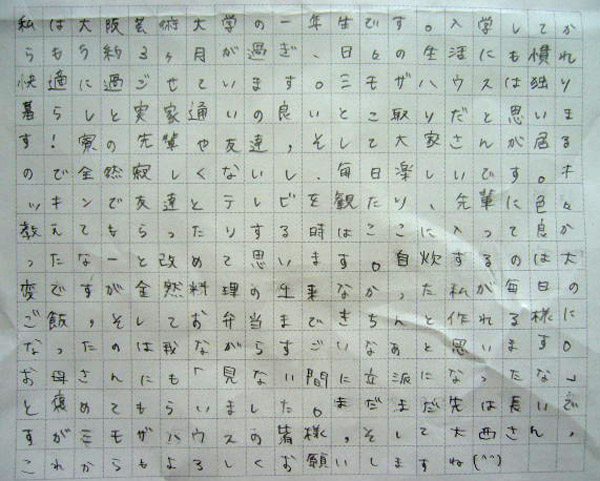 私は大阪芸術大学の一年生です。入学してか
らもう約3ヶ月が過ぎ、日々の生活にも慣れ
快適に過ごせています。ミモザハウスは独り
暮らしと実家通いの良いとこ取りだと思いま
す!寮の先輩や友達,そして大家さんが居る
ので全然寂しくないし、毎日楽しいです。キ
ッキンで友達とテレビを観たり、先輩に色々
教えてもらったりする時はここに入って良か
ったなーと改めて思います。自炊するのは大
変ですが全然料理の出来なかった私が毎日の
ご飯,そしてお弁当まできちんと作れる様に
なったのは我ながらすごいなぁと思います。
お母さんにも「見ない間に立派になったな」
と褒めてもらいました。まだまだ先は長いで
すがミモザハウスの皆様,そして大西さん,
これからもよろしくお願いしますね(^^)